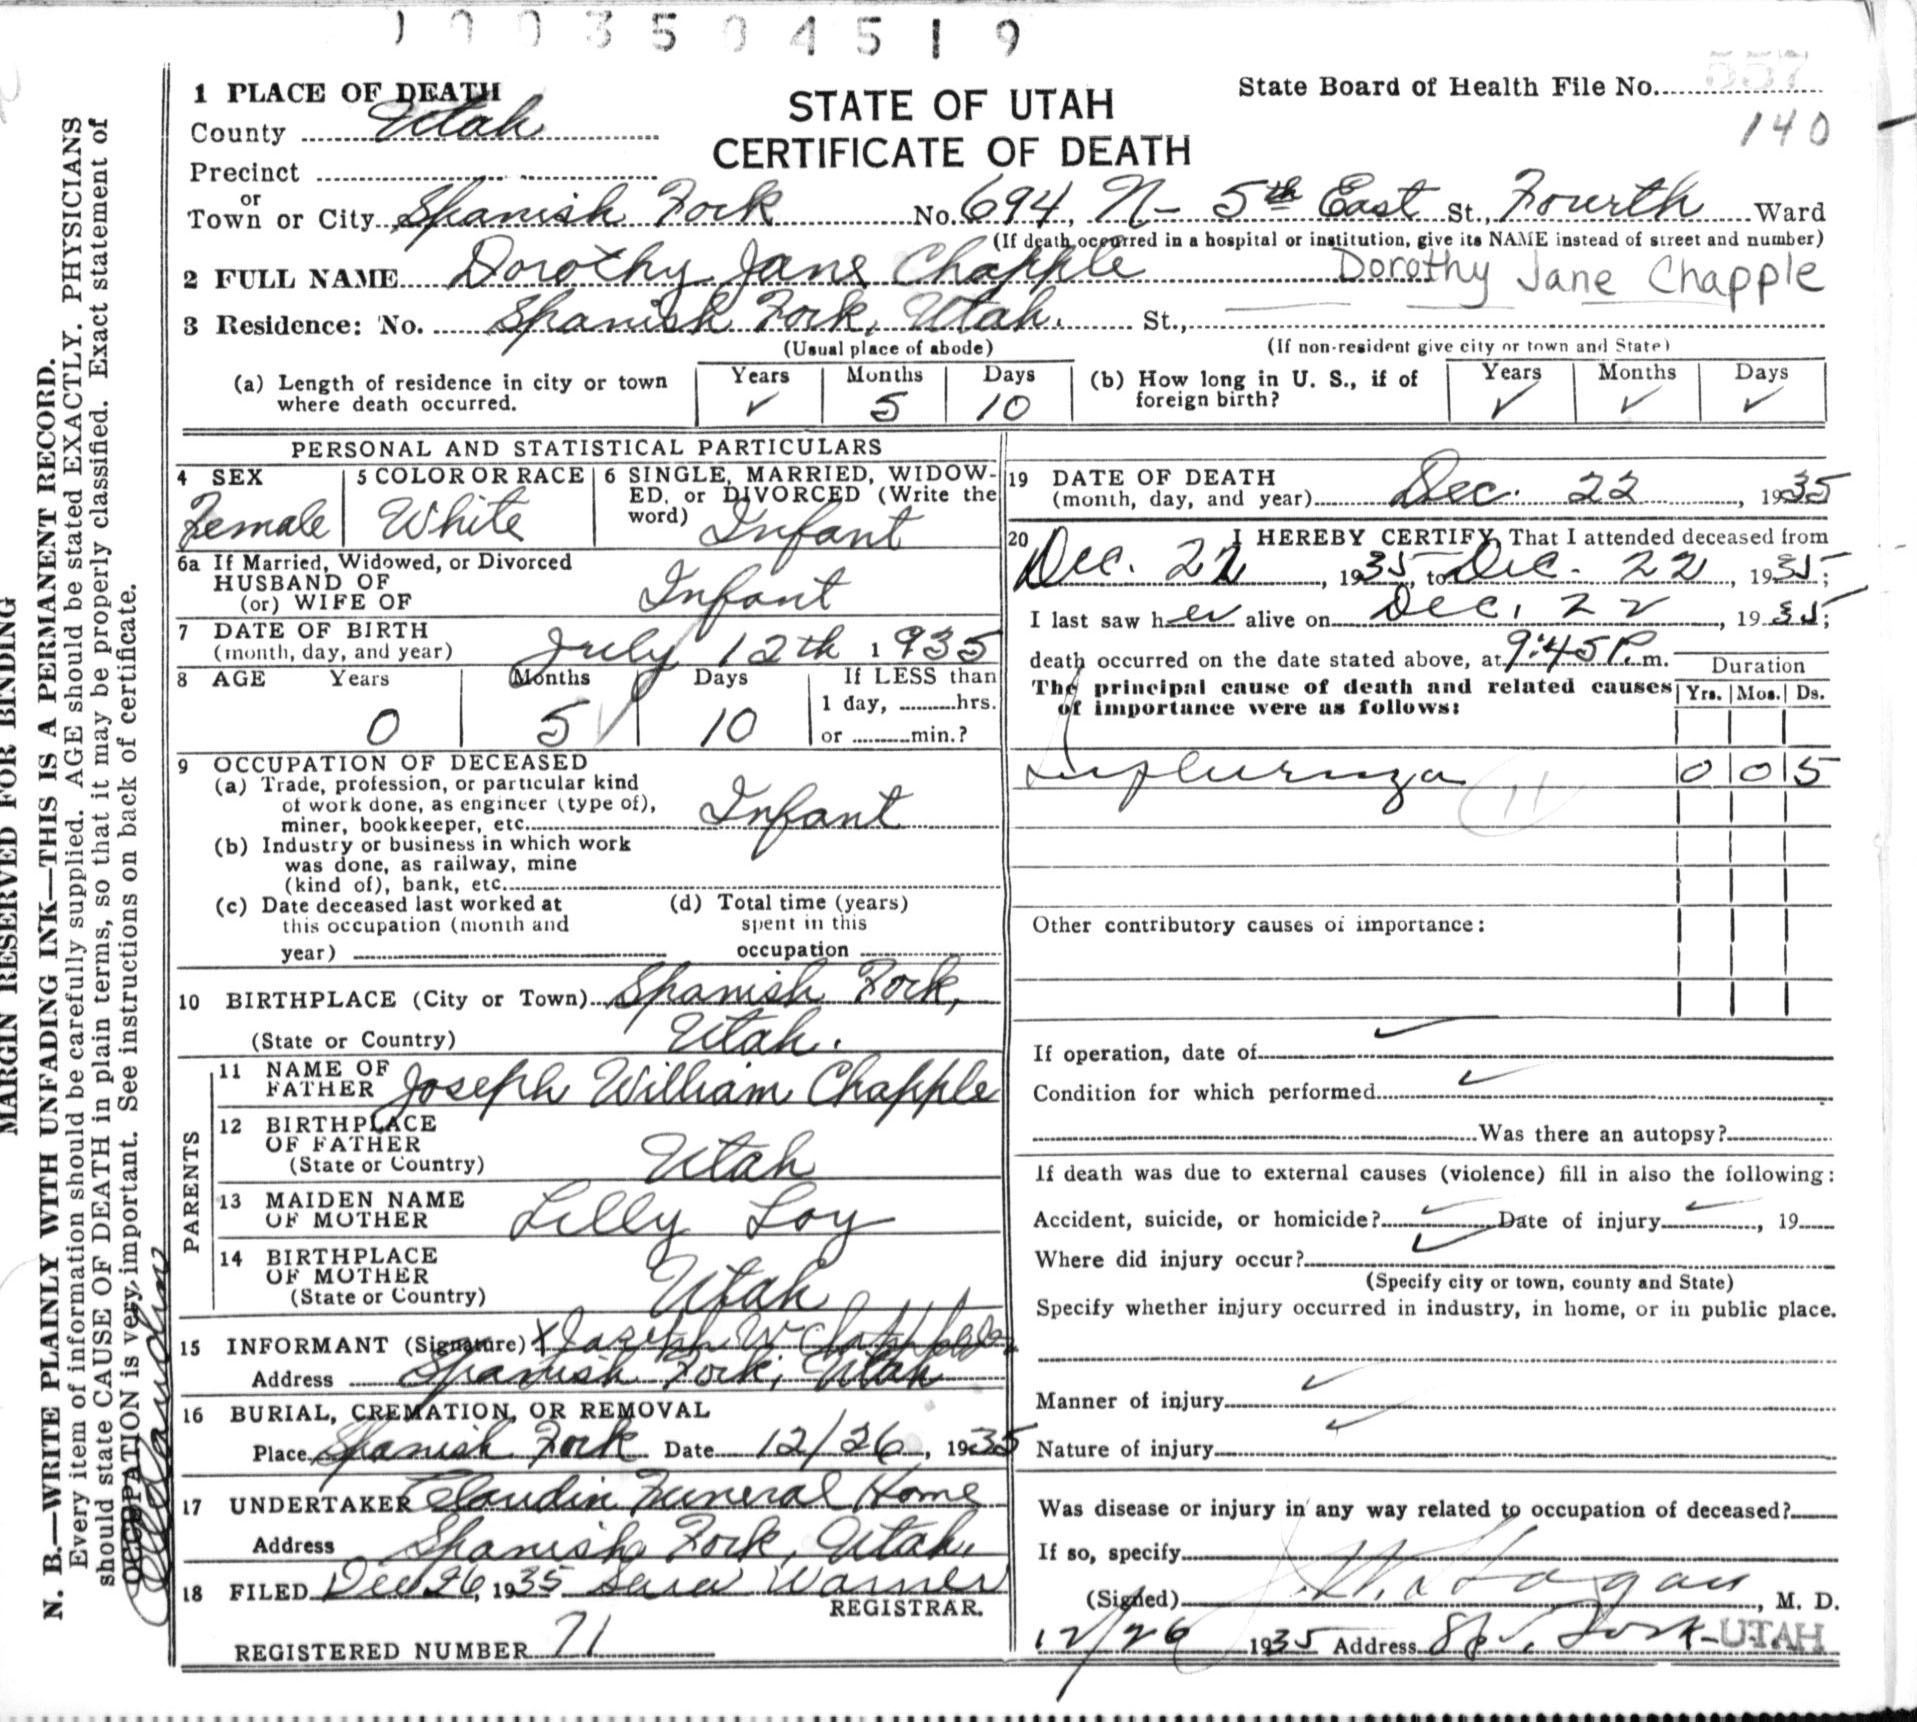 1003504519
1 PLACE OF DEATH
County Utah
STATE OF UTAH
CERTIFICATE OF DEATH
State Board of Health File No. 557
140
Precinct
or
Town or City Spanish Fork No. 694, N- 5th East St., Fourth Ward
(If death occurred in a hospital or institution, give its NAME instead of street and number)
2 FULL NAME Dorothy Jane Chapple Dorothy Jane Chapple
3 Residence: No. Spanish Fork, Utah. St.,
(Usual place of abode) (If non-resident give city or town and State)
(a) Length of residence in city or town where death occurred. Years ✓ Months 5 Days 10
(b) How long in U. S., if of foreign birth? Years ✓ Months ✓ Days ✓
PERSONAL AND STATISTICAL PARTICULARS
4 SEX Female
5 COLOR OR RACE White
6 SINGLE, MARRIED, WIDOW-
ED, or DIVORCED (Write the
word) Infant
6a If Married, Widowed, or Divorced
HUSBAND OF
(or) WIFE OF Infant
7 DATE OF BIRTH
(month, day, and year) July 12th 1935
8 AGE Years Months Days If LESS than
0 5 10 1 day, hrs.
or min.?
9 OCCUPATION OF DECEASED
(a) Trade, profession, or particular kind
of work done, as engineer (type of),
miner, bookkeeper, etc. Infant
(b) Industry or business in which work
was done, as railway, mine
(kind of), bank, etc.
(c) Date deceased last worked at
this occupation (month and
year)
(d) Total time (years)
spent in this
occupation
10 BIRTHPLACE (City or Town) Spanish Fork,
(State or Country) Utah.
PARENTS
11 NAME OF
FATHER Joseph William Chapple
12 BIRTHPLACE
OF FATHER
(State or Country) Utah
13 MAIDEN NAME
OF MOTHER Lilly Loy
14 BIRTHPLACE
OF MOTHER
(State or Country) Utah
15 INFORMANT (Signature) x Joseph W Chapple
Address Spanish Fork, Utah
16 BURIAL, CREMATION, OR REMOVAL
Place Spanish Fork Date 12/26, 1935
17 UNDERTAKER Claudin Funeral Home
Address Spanish Fork, Utah.
18 FILED Dec 26, 1935 Sara Warner
REGISTRAR.
REGISTERED NUMBER 71
19 DATE OF DEATH
(month, day, and year) Dec. 22, 1935
20 I HEREBY CERTIFY, That I attended deceased from
Dec. 22, 1935, to Dec. 22, 1935;
I last saw her alive on Dec. 22, 1935;
death occurred on the date stated above, at 9:45 P. m.
The principal cause of death and related causes
of importance were as follows:
Duration
Yrs. Mos. Ds.
Influenza 0 0 5
11
Other contributory causes of importance:
If operation, date of ✓
Condition for which performed ✓
Was there an autopsy?
If death was due to external causes (violence) fill in also the following:
Accident, suicide, or homicide? ✓ Date of injury ✓, 19
Where did injury occur? ✓
(Specify city or town, county and State)
Specify whether injury occurred in industry, in home, or in public place.
Manner of injury ✓
Nature of injury ✓
Was disease or injury in any way related to occupation of deceased?
If so, specify
(Signed) Hagan, M. D.
12/26 1935 Address Sp. Fork- UTAH
MARGIN RESERVED FOR BINDING
N. B.—WRITE PLAINLY WITH UNFADING INK—THIS IS A PERMANENT RECORD.
Every item of information should be carefully supplied. AGE should be stated EXACTLY. PHYSICIANS
should state CAUSE OF DEATH in plain terms, so that it may be properly classified. Exact statement of
OCCUPATION is very important. See instructions on back of certificate.